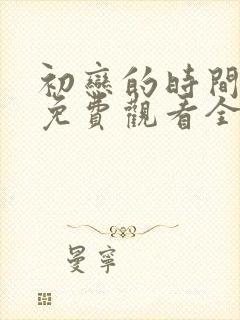 初戀的時間
免費觀看全
曼寧